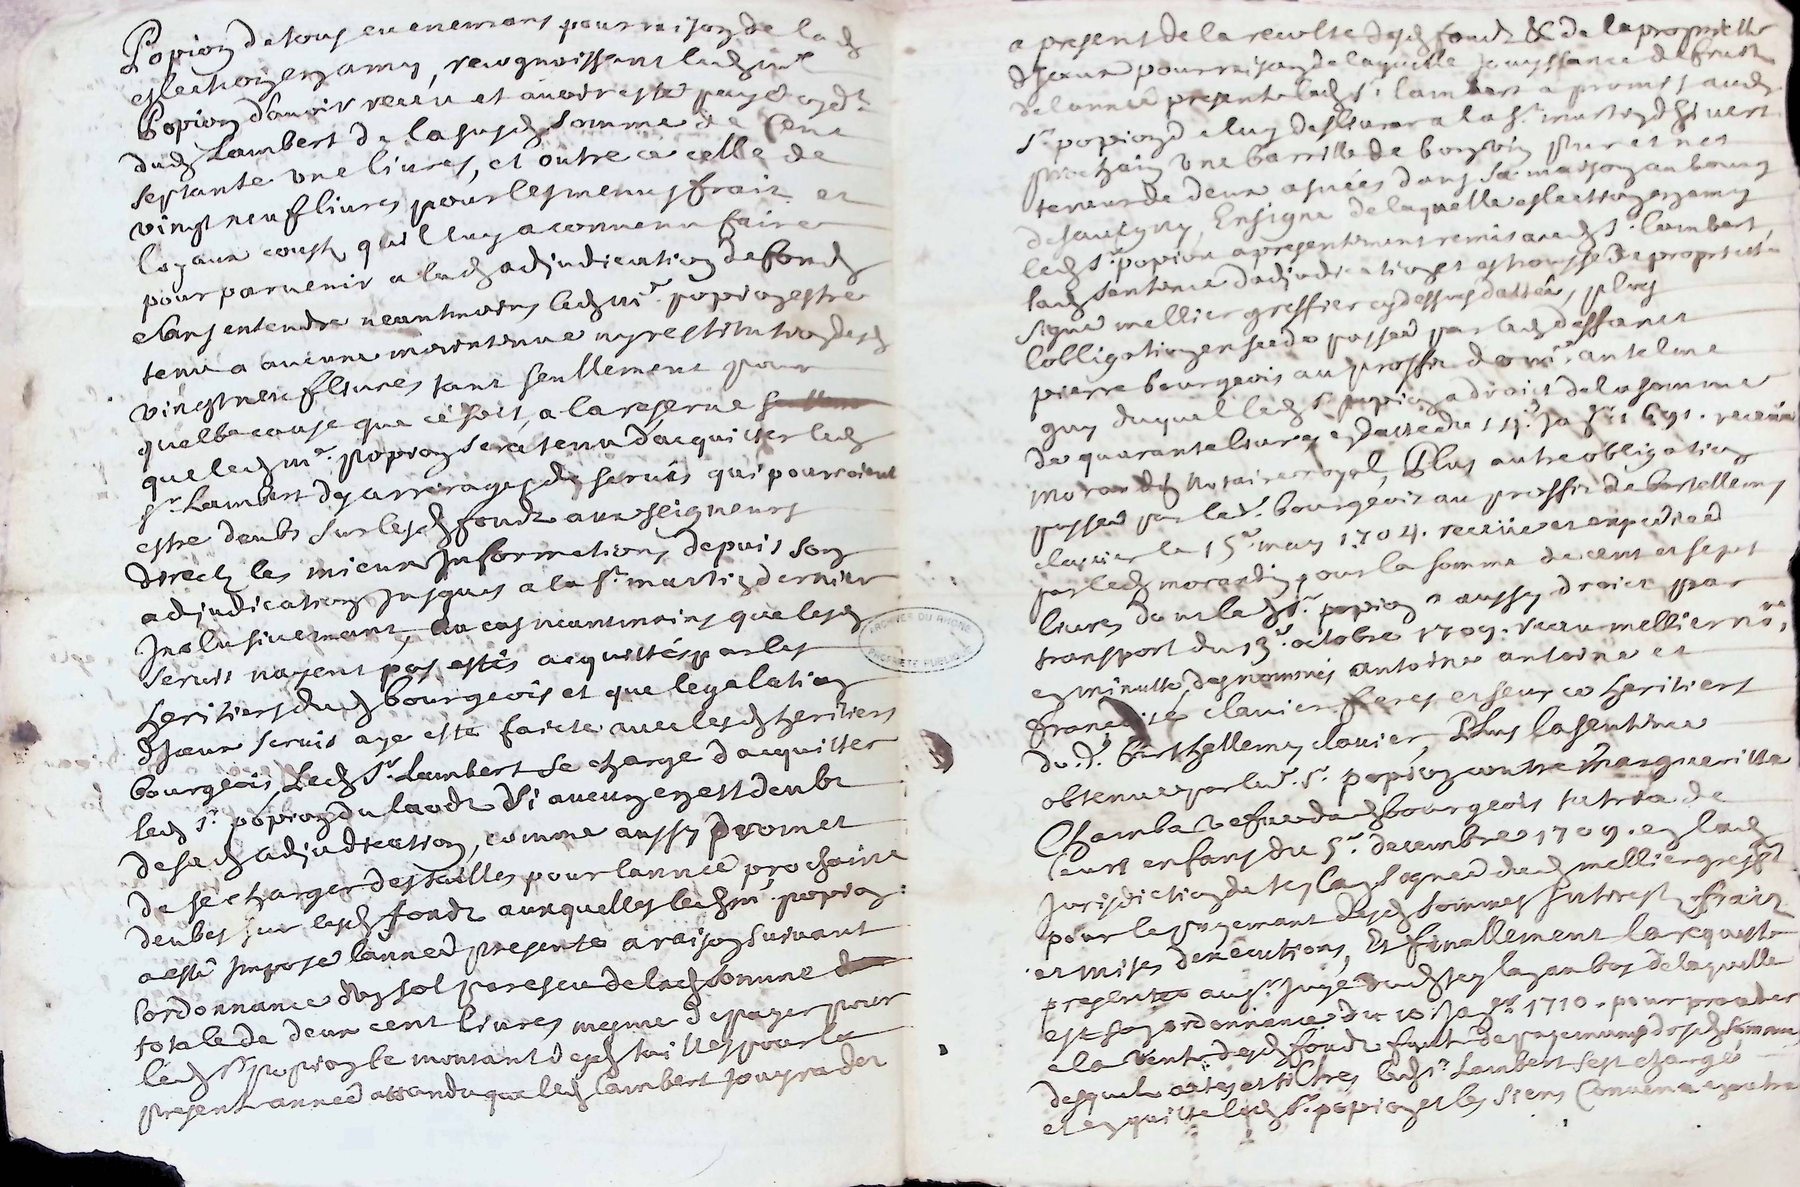 Popion de tous evenemans pour raison de lad
eslection en amy, recognoissant led mr
Popion d'avoir receu et avoir esté payé cy dt
dud Lambert de la susd somme de Cent
septante une livres, et outre ce celle de
vingt neuf livres pour les menus frait et
loyaux coust qu'il luy a convenu faire
pour parvenir a lad adjudication de fond
sans entendre neantmoins led mr popion estre
tenu a aucune maintenue ny restitution desd
vingt neuf livres tant seullement pour
quelle cause que ce soit, a la reserve
que led mr popion sera tenu d'acquitter led
sr Lambert des arrerages de servis qui pourroient
estre deubs sur lesd fondz aux seigneurs
directz les mieux Informations depuis son
adjudication Jusques a la st martin dernier
Inclusivement, au cas neantmoins que lesd
servis nayent pas estés acquittés par les
heritiers dud bourgeois et que legalation
d'Iceux servis aye esté faicte avec lesd heritiers
bourgeois, Led Sr Lambert se charge d'acquitter
led sr popion du laodz si aucun en est deubt
de sad adjudication, comme aussy promet
de se charger des tailles pour lannée prochaine
deubes sur lesd fondz auxquelles led mr popion
a esté Imposé lannée presente a raison suivant
lordonnance d'un sol par escu de lad somme
totale de deux cent livres mesme de payer pour
led sr popion le montant desd tailles pour la
present année attandu que led Lambert Jouyra des
a present de la recolte desd fondz & de la propriette
d'Iceux pour raison de laquelle Jouyssance de fruitz
de lannée presente led sr lambert a promis aud
sr popion de luy deslivrer a la st martin d'hivert
prochain une barrille de bon vin pur et net
teneur de deux asnées dans sa maison au bourg
de savigny, En signe de laquelle eslection en amy
led sr popion a presentement remis aud sr lambert
lad sentence dadjudication et estrousse de propriette
signé mellier greffier cy dessus dattée, plus
lobligation en seedz passée par led deffunct
pierre bourgeois au proffit de mr antelme
guy duquel led sr popion a droict de la somme
de quarante livres en datte du 14e Jar 1691. receüe
morandin notaire royal, Plus autre obligation
passée par led bourgeois au proffit de bertellemy
clavier le 15e may 1704. receüe et expediée
par led morandin pour la somme de cent et sept
livres dont led sr popion a aussy droict par
transport du 13e octobre 1709. receu mellier nore
en minutte des nommés antoine antoine et
françois clavier freres et seur co heritiers
du d. berthellemy clavier, Plus la sentence
obtenue par led. sr. popion contre margueritte
Chamba vefve dud bourgeois tutrice de
leurs enfans du 5e decembre 1709. en lad
Jurisdiction de teylan signée dud mellier greffr
pour le payement desd sommes Interest frait
et mises dexécutions, Et finallement la requeste
presentée au sr Juge dud teylan au bas de laquelle
est son ordonnance du 10e Jaer 1710. pour proceder
a la vente desd fondz faute de payement desd sommes
desquels actes et tiltres led sr Lambert sest chargé
et en quitte led sr popion et les siens